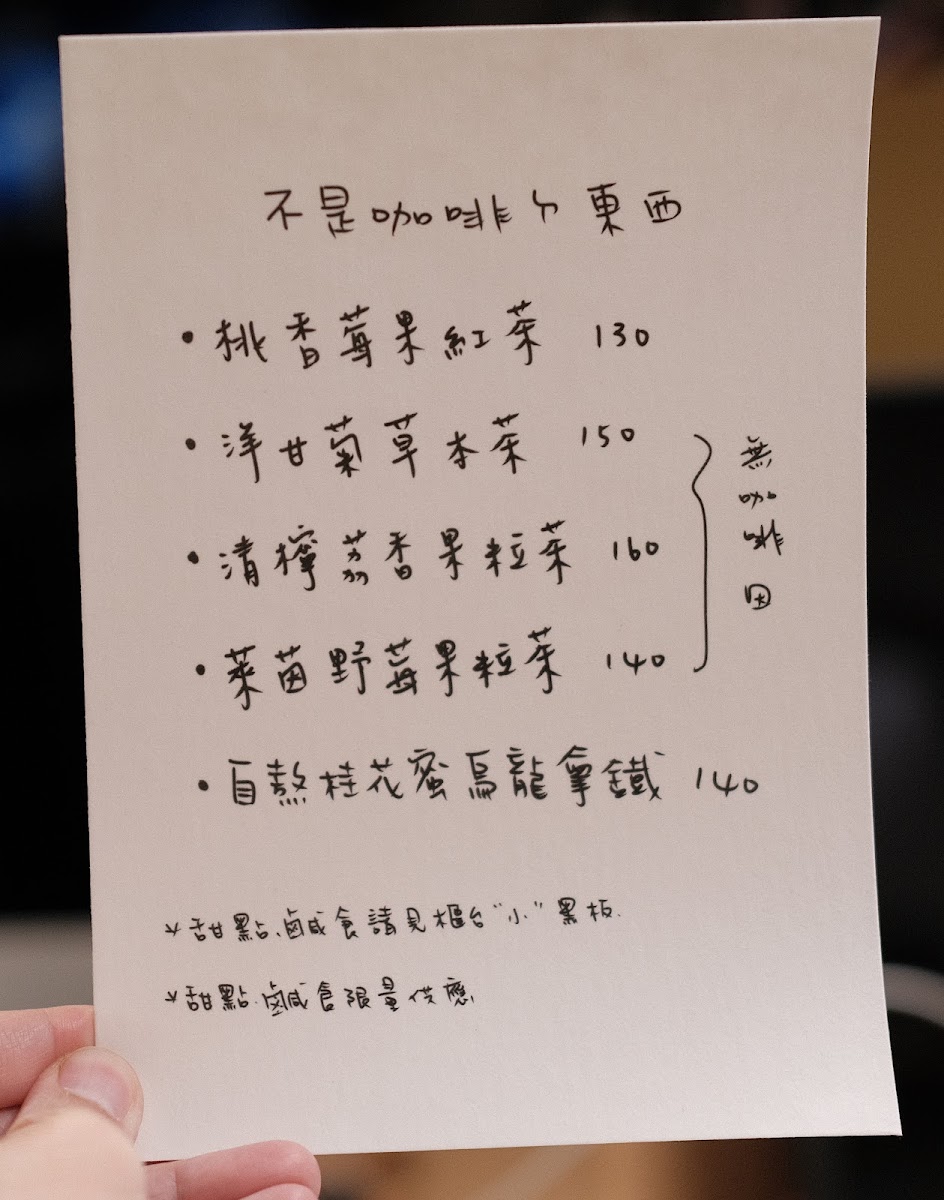 不是咖啡ㄉ東西
• 桃香莓果紅茶 130
• 洋甘菊草本茶 150
• 清檸荔香果粒茶 160
• 萊茵野莓果粒茶 140
無咖啡因
• 自熬桂花蜜烏龍拿鐵 140
*甜點、鹹食請見櫃台"小"黑板.
*甜點.鹹食限量供應.